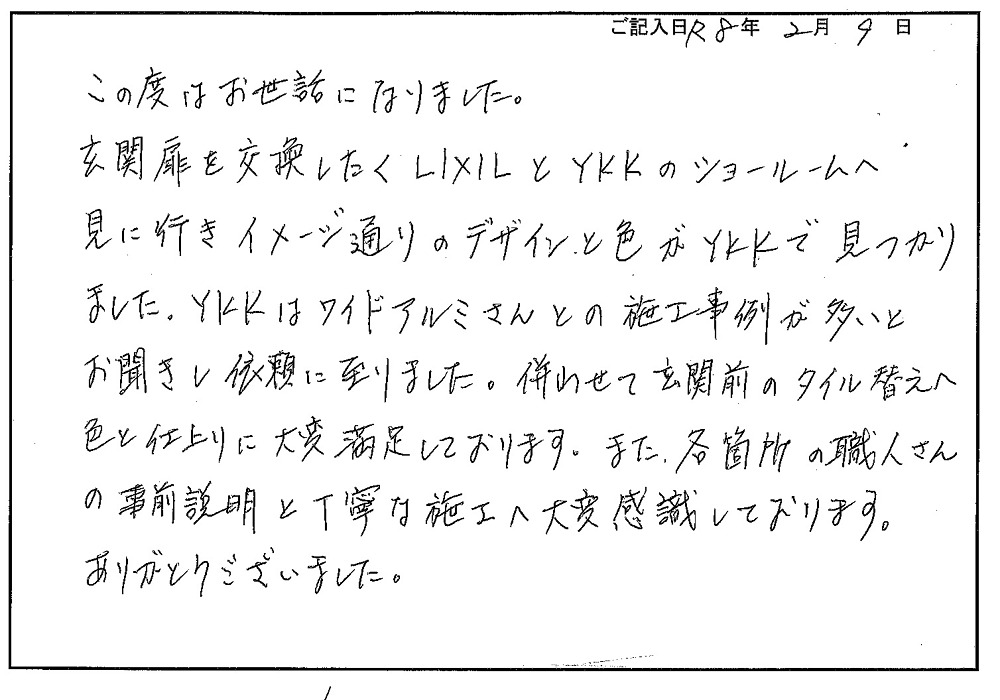 ご記入日R8年 2月 9日
この度はお世話になりました。
玄関扉を交換したくLIXILとYKKのショールームへ
見に行きイメージ通りのデザインと色がYKKで見つかり
ました。YKKはワイドアルミさんとの施工事例が多いと
お聞きし依頼に至りました。併わせて玄関前のタイル替えへ
色と仕上りに大変満足しております。また、各箇所の職人さん
の事前説明と丁寧な施工へ大変感識しております。
ありがとうございました。